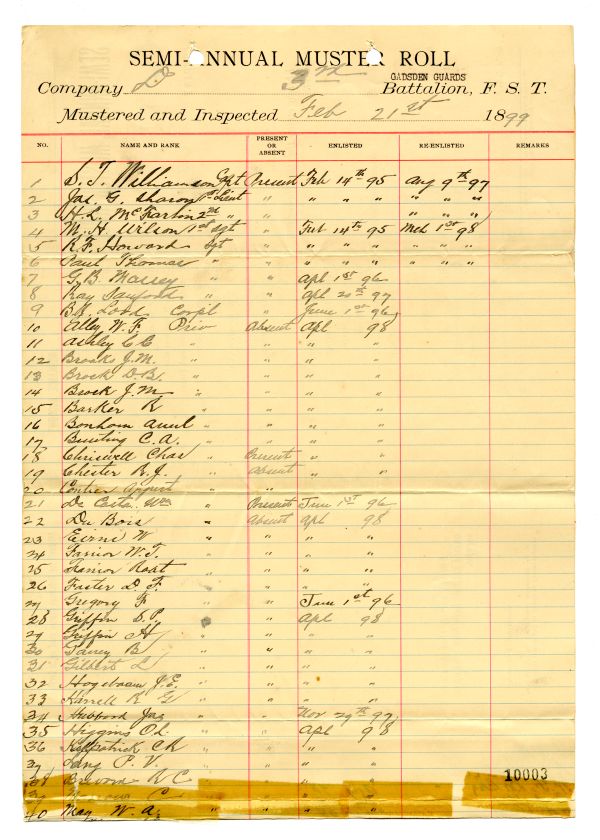 SEMI-ANNUAL MUSTER ROLL
GADSDEN GUARDS
Company D 3rd Battalion, F. S. T.
Mustered and Inspected Feb 21st 1899
NO. NAME AND RANK PRESENT OR ABSENT ENLISTED RE-ENLISTED REMARKS
1 S. T. Williamson Capt Present Feb 14th 95 Aug 9th 97
2 Jas. G. Sharon 1st Lieut " " " "
3 H. L. 2nd " " " "
4 M. H. Wilson 1st Sgt " Feb 14th 95 Mch 1st 98
5 R. F. Howard Sgt " " " " " " "
6 Paul Thomas " " " " " " " "
7 G. B. Massey " " Apl 1st 96
8 Ray " " Apl 20th 97
9 Corpl " June 1st 96
10 Alley W. F. Priv Absent Apl 98
11 Ashley C C " " " "
12 Brooks J. M. " " " "
13 Brock D. B. " " " "
14 Brock J. M " " " "
15 Barker R " " " "
16 Bonham " " " "
17 Bunting C. A. " " " "
18 Chriswell Chas " Present " "
19 Chester R. J. " Absent " "
20 August " "
21 Da Costa Wm " Present June 1st 96
22 Du Bois " Absent Apl 98
23 W " " " "
24 Farrior W. T. " " " "
25 Farrior " " " "
26 Foster D. F. " " " "
27 Gregory F " " June 1st 96
28 Griffin S. P. " " Apl 98
29 Griffin H " " " "
30 B " " " "
31 Gilbert L " " " "
32 J. E. " " " "
33 Harrell K G " " " "
34 Hubbard Jas " " Nov 29th 97
35 Higgins O. L. " " Apl 98
36 Kilpatrick C H " " " "
37 Lang P. V. " " " "
38 C " " " "
10003
39
40 May W. A. " " " "